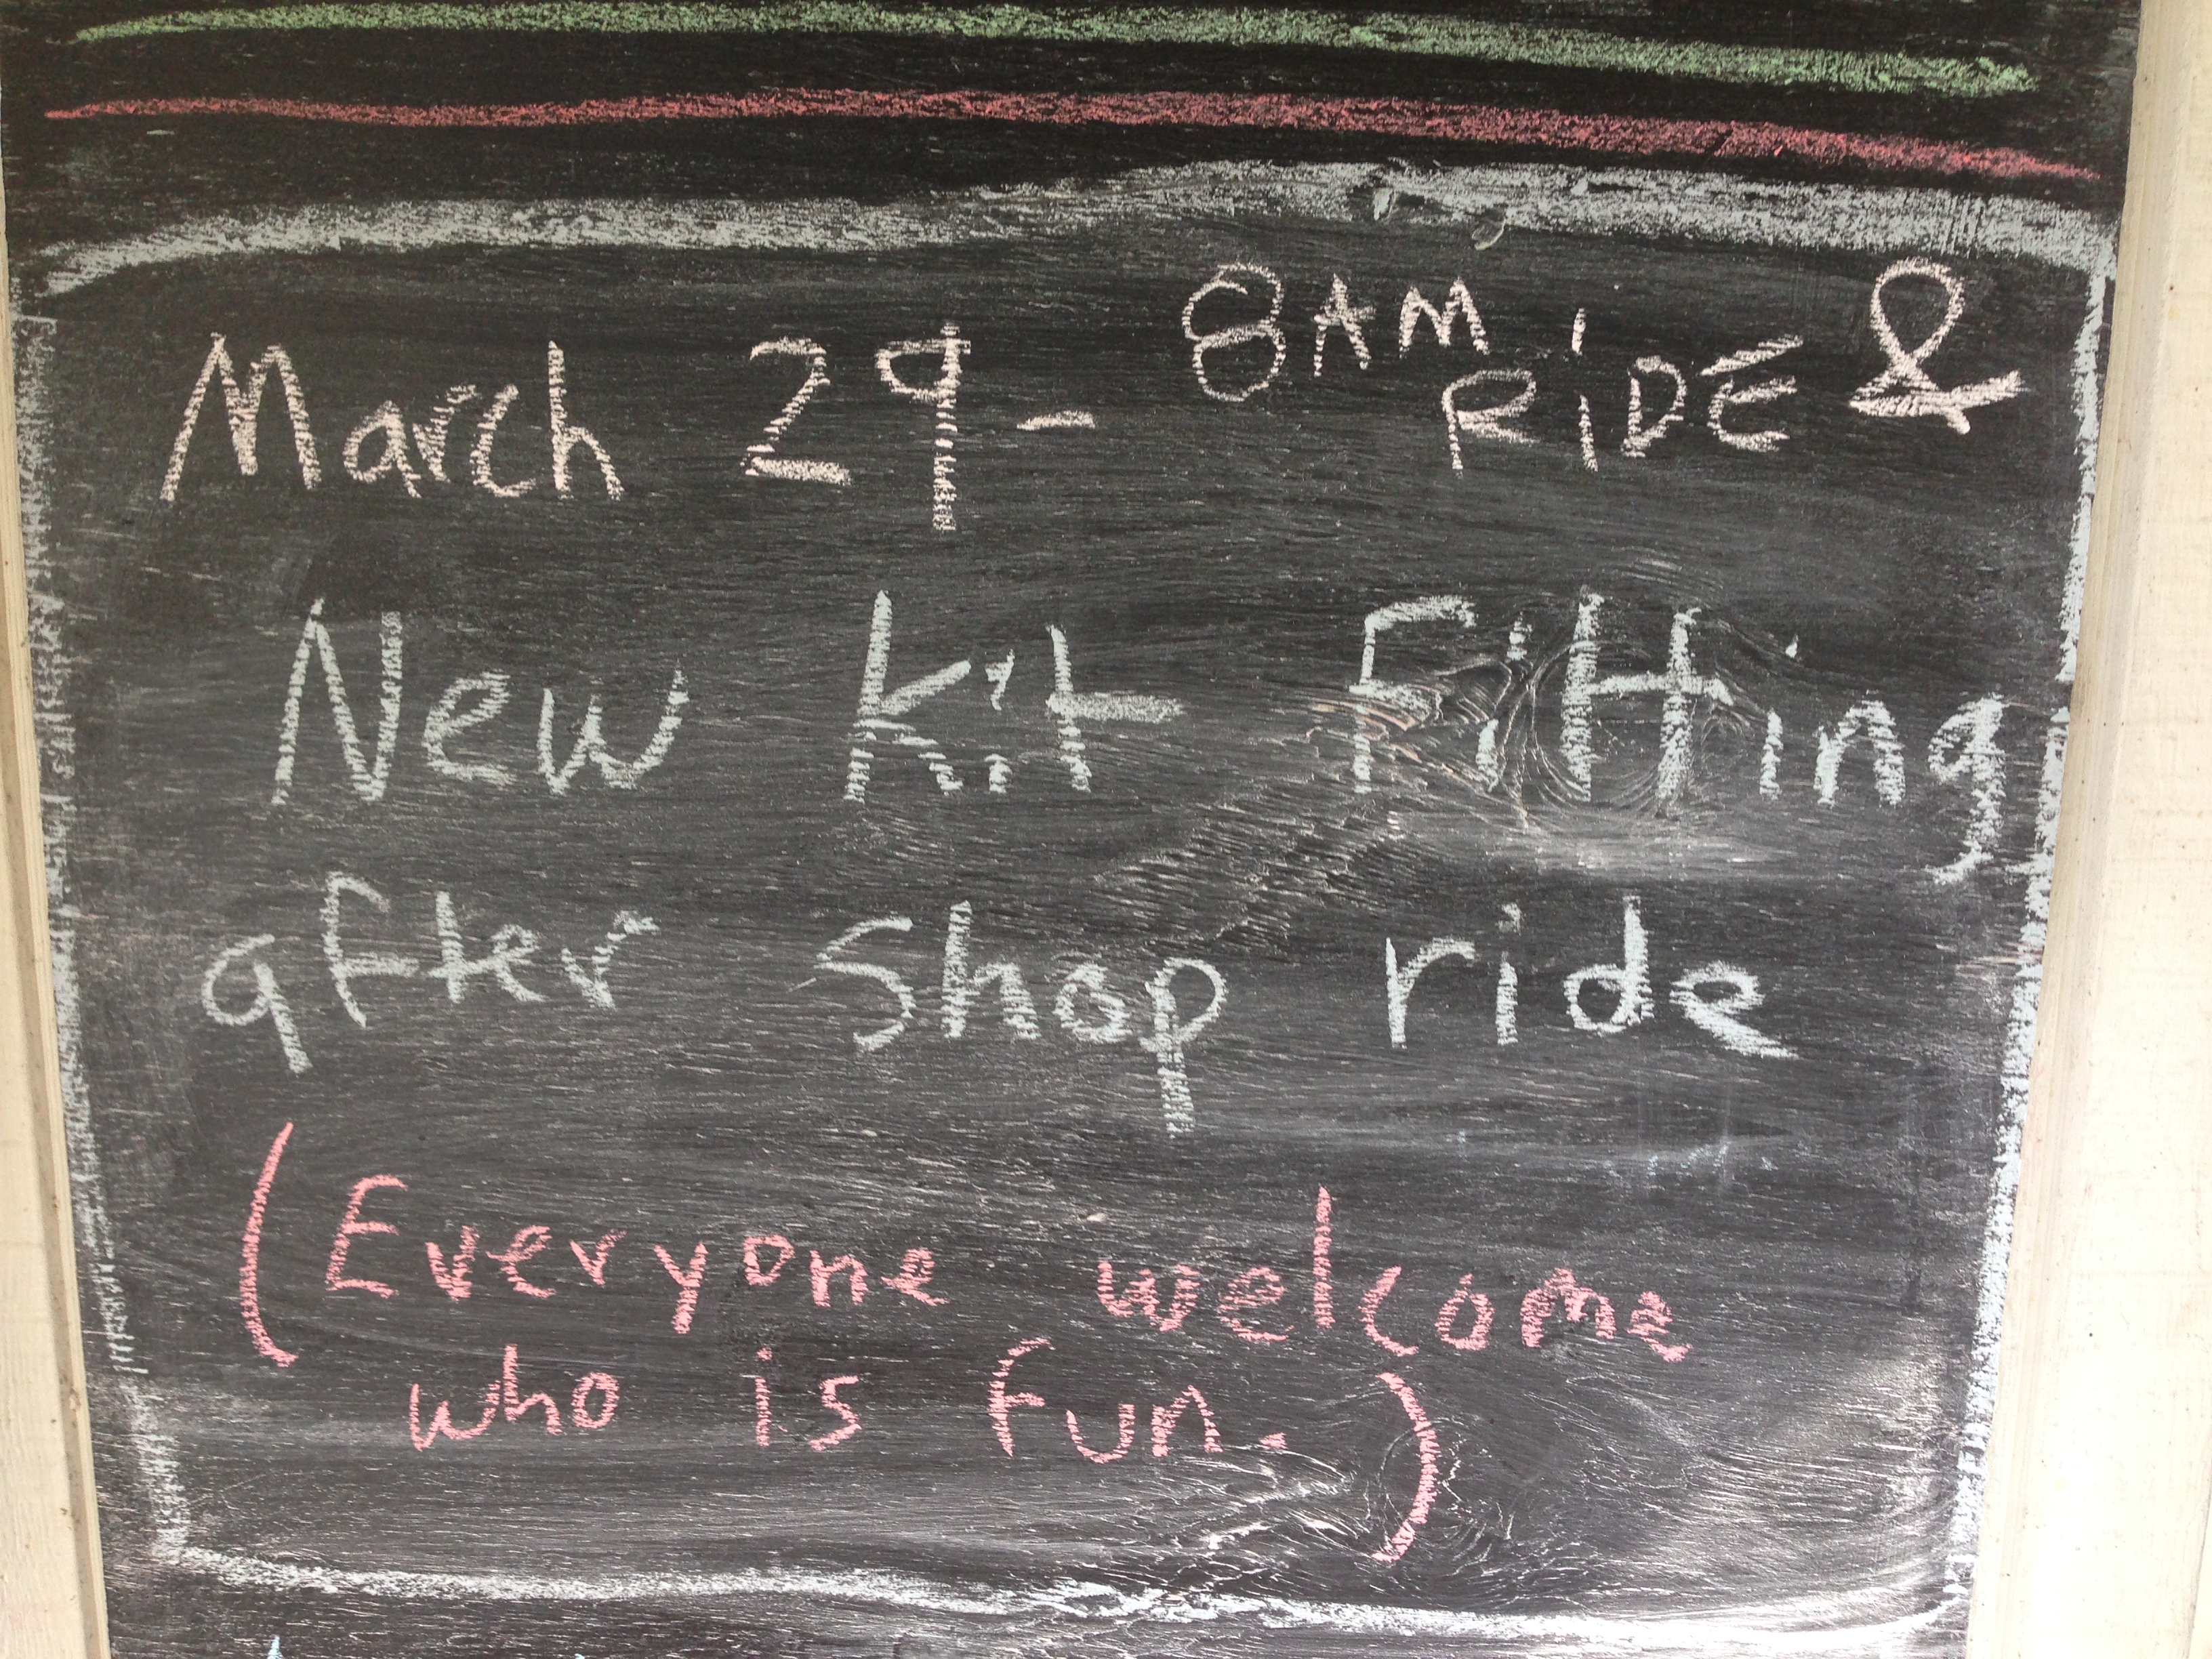 March 29 - 8AM RiDE &
New kit Fitting
after shop ride
(Everyone welcome
who is fun.)